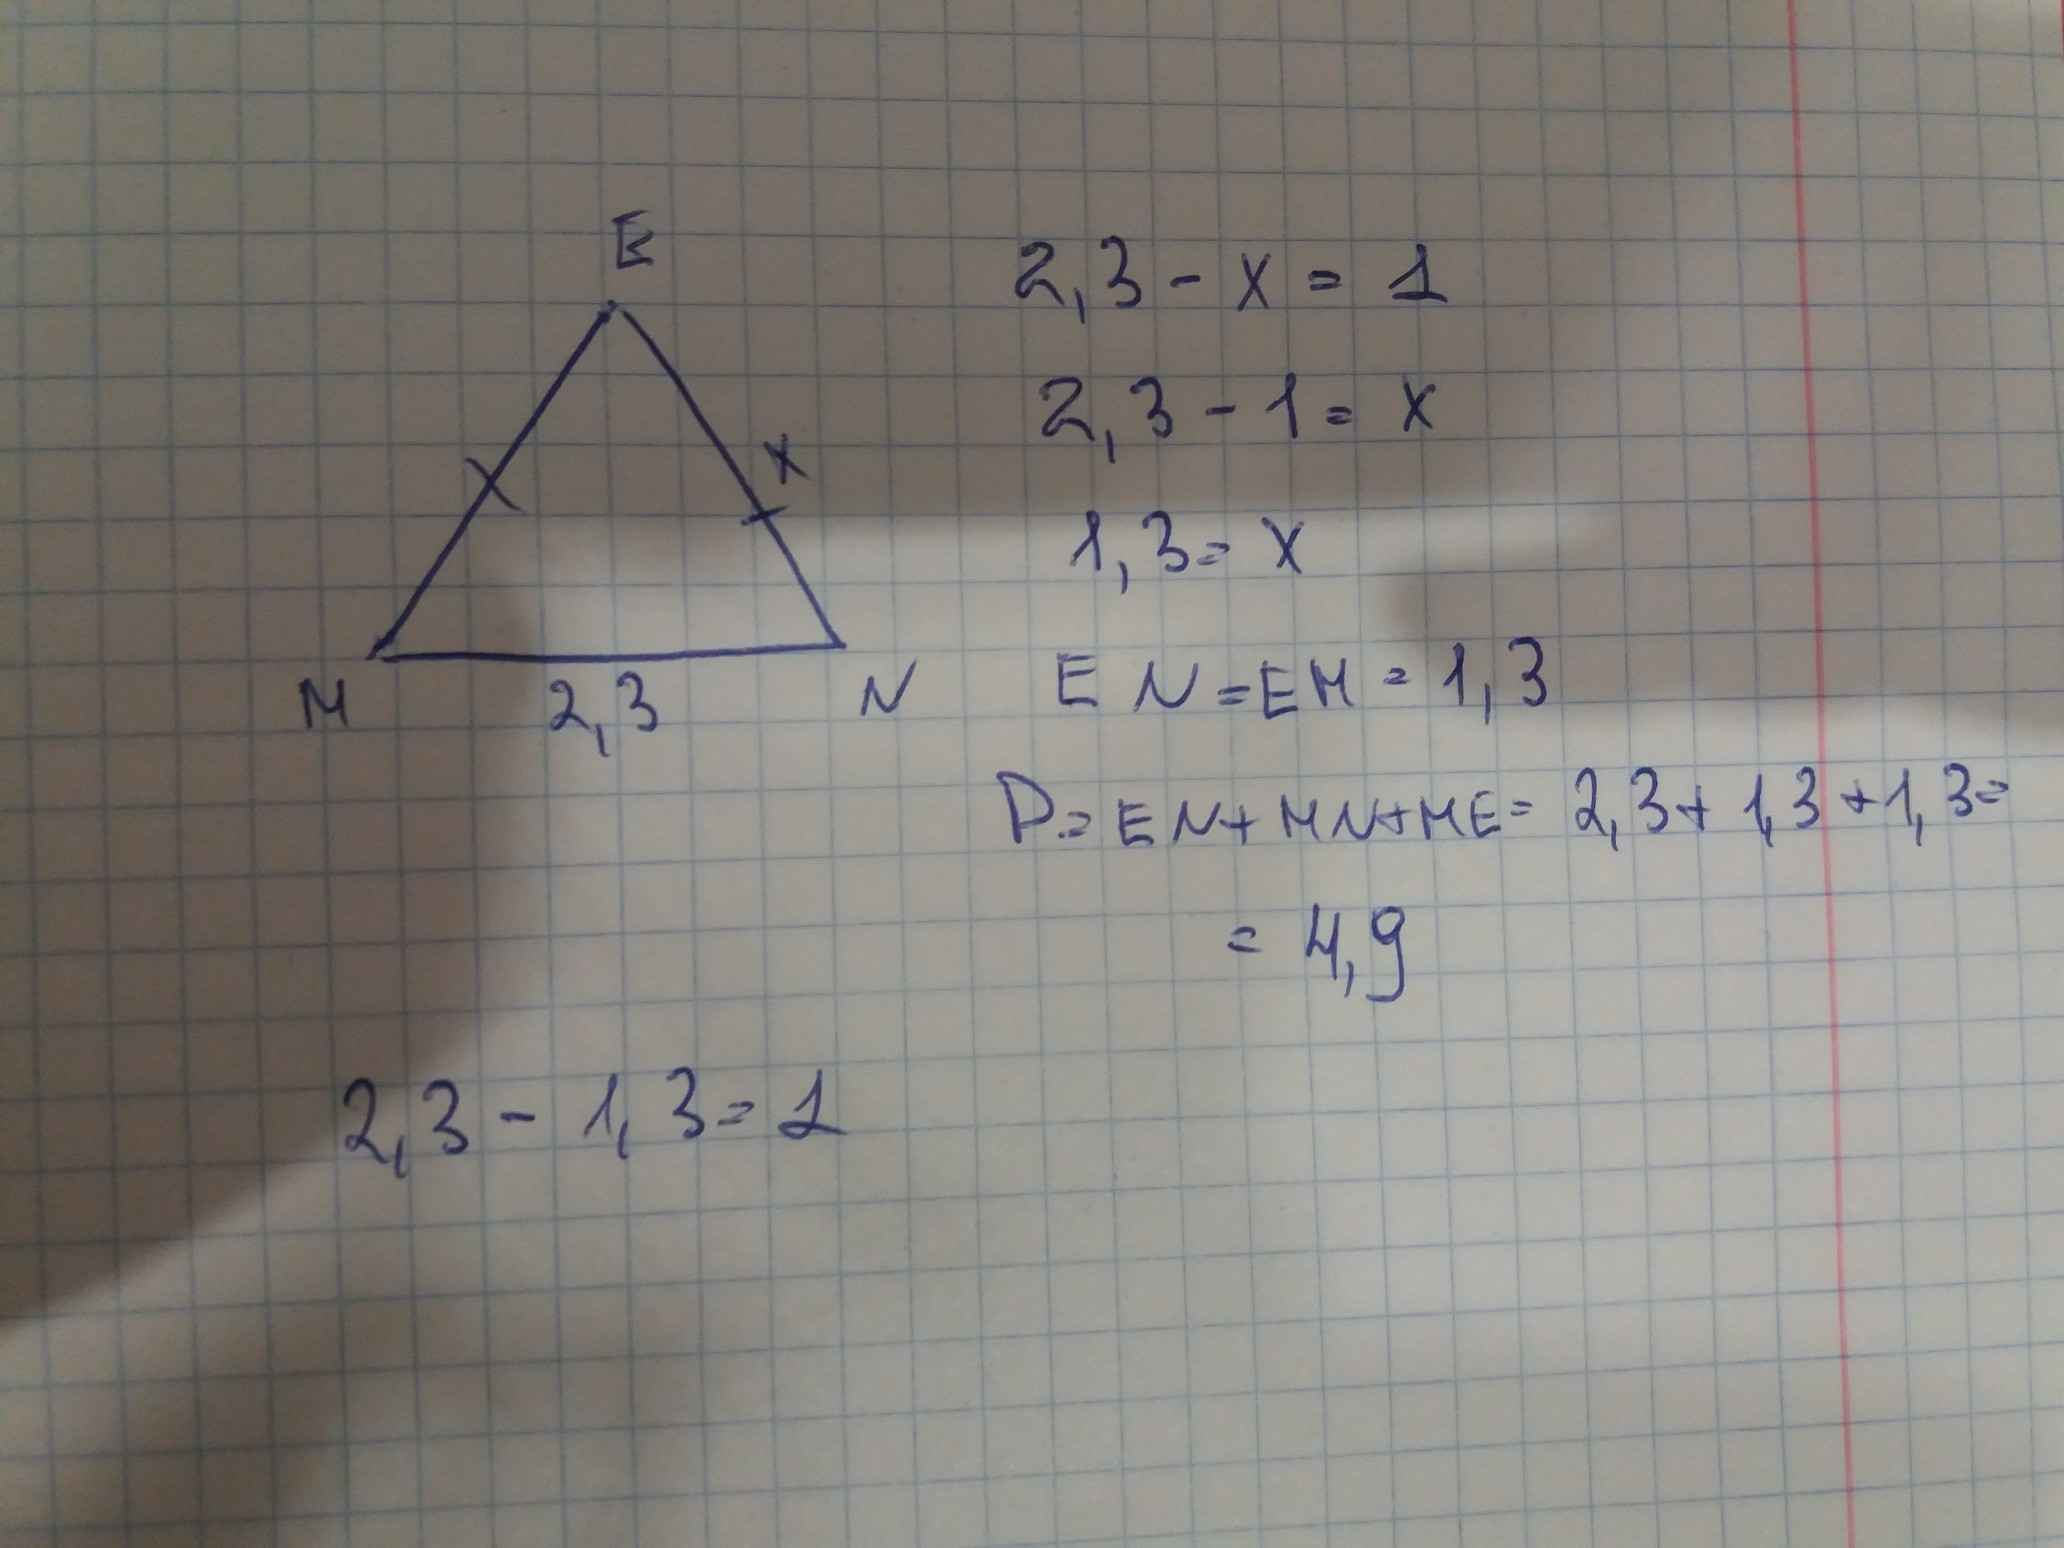 E
x
M 2,3 N
2,3 - x = 1
2,3 - 1 = x
1,3 = x
EN = EM = 1,3
P = EN + MN + ME = 2,3 + 1,3 + 1,3 =
= 4,9
2,3 - 1,3 = 1